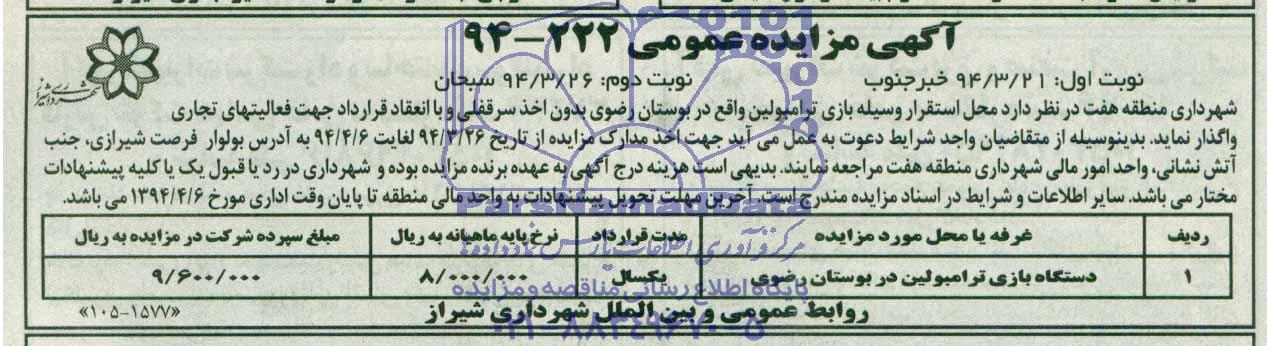 آگهی مزایده عمومی ۲۲۲-۹۴
نوبت اول: ۹۴/۳/۲۱ خبرجنوب نوبت دوم: ۹۴/۳/۲۶ سبحان
شهرداری شیراز
شهرداری منطقه هفت در نظر دارد محل استقرار وسیله بازی ترامبولین واقع در بوستان رضوی بدون اخذ سرقفلی و با انعقاد قرارداد جهت فعالیتهای تجاری
واگذار نماید. بدینوسیله از متقاضیان واجد شرایط دعوت به عمل می آید جهت اخذ مدارک مزایده از تاریخ ۹۴/۳/۲۶ لغایت ۹۴/۴/۶ به آدرس بولوار فرصت شیرازی، جنب
آتش نشانی، واحد امور مالی شهرداری منطقه هفت مراجعه نمایند. بدیهی است هزینه درج آگهی به عهده برنده مزایده بوده و شهرداری در رد یا قبول یک یا کلیه پیشنهادات
مختار می باشد. سایر اطلاعات و شرایط در اسناد مزایده مندرج است. آخرین مهلت تحویل پیشنهادات به واحد مالی منطقه تا پایان وقت اداری مورخ ۱۳۹۴/۴/۶ می باشد.
ردیف غرفه یا محل مورد مزایده مدت قرارداد نرخ پایه ماهیانه به ریال مبلغ سپرده شرکت در مزایده به ریال
۱ دستگاه بازی ترامبولین در بوستان رضوی یکسال ۸/۰۰۰/۰۰۰ ۹/۶۰۰/۰۰۰
روابط عمومی و بین الملل شهرداری شیراز
«۱۰۵-۱۵۷۷»
ParsNamadData
مرکز فرآوری اطلاعات پارس نماد داده ها
پایگاه اطلاع رسانی مناقصه و مزایده
۰۲۱-۸۸۳۴۹۶۷۰-۵